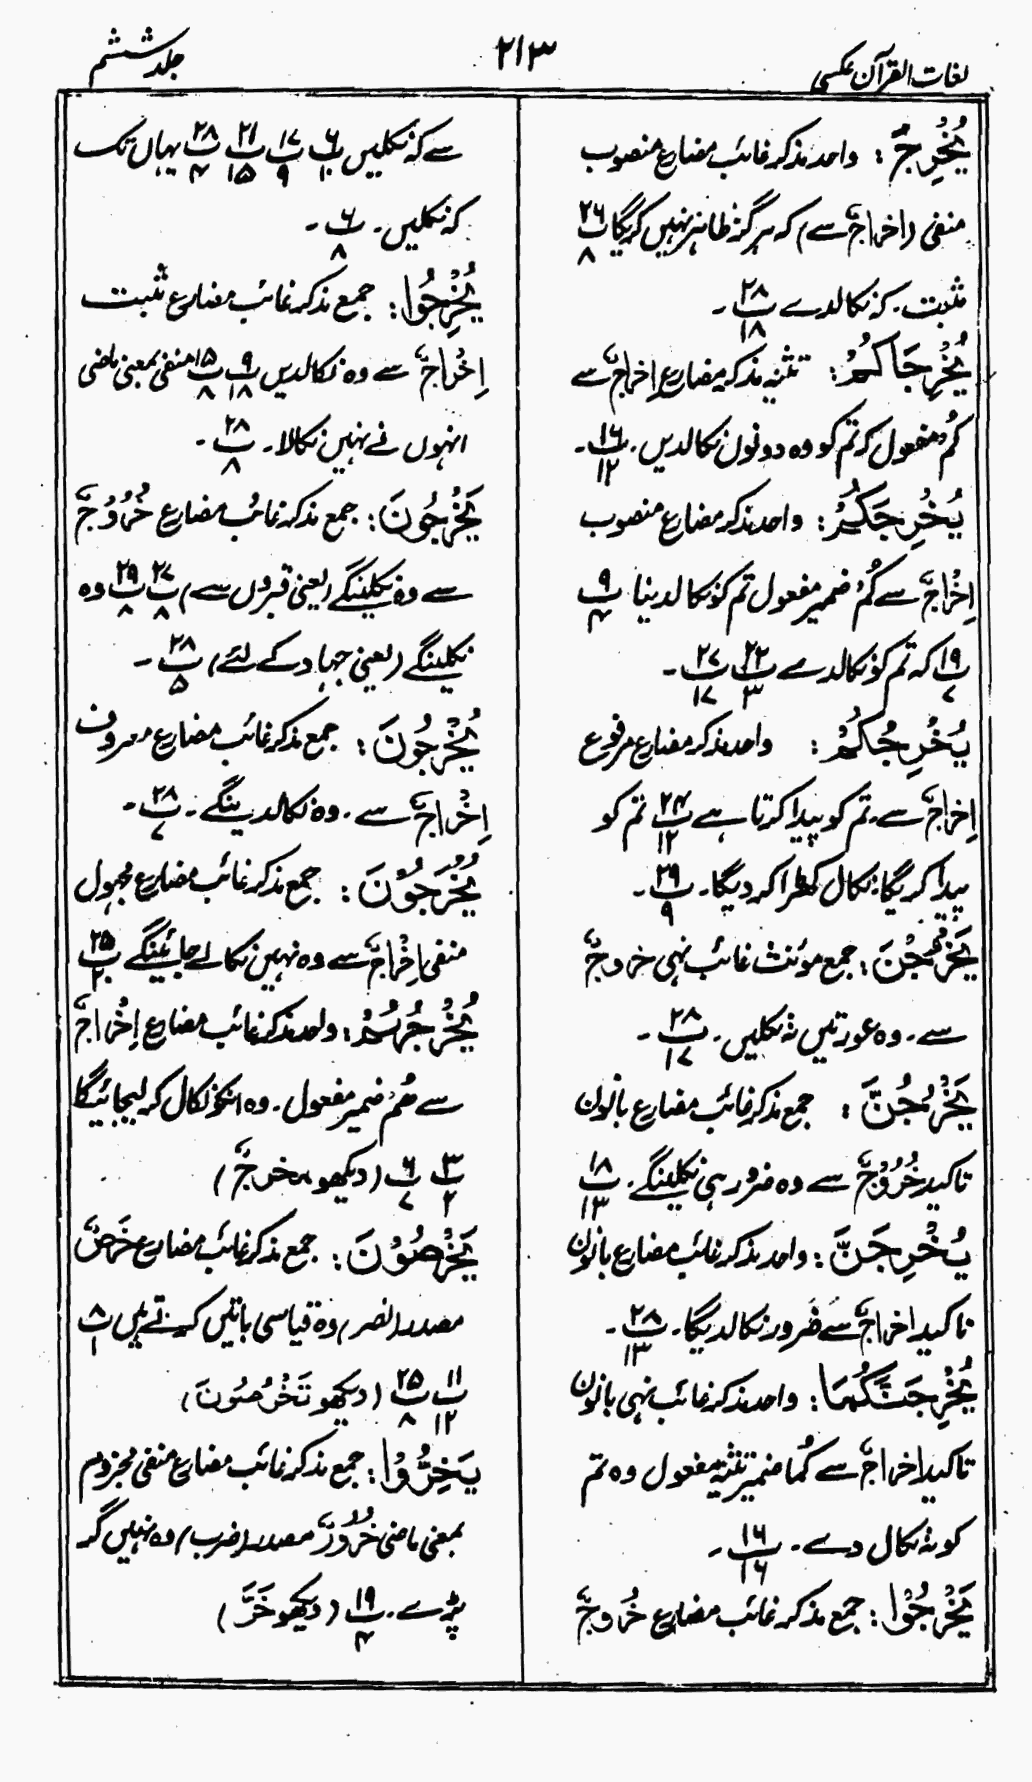 لغات القرآن عکسی
۲۱۳
جلد ششم
یُخْرِجَ : واحد مذکر غائب مضارع منصوب
منفی (اخراجٌ سے) کہ ہرگز ظاہر نہیں کریگا ۲۶پ۸
مثبت۔ کہ نکالدے ۲۸پ۱۸۔
یُخْرِجَاکُمْ : تثنیہ مذکر مضارع اِخراجٌ سے
کُم مفعول کہ تم کو وہ دونوں نکالدیں۔ ۱۶پ۱۲۔
یُخْرِجَکُمْ : واحد مذکر مضارع منصوب
اِخْرَاجٌ سے کُمْ ضمیر مفعول تم کو نکالدینا ۹پ۴
۱۹پ۷ کہ تم کو نکالدے ۲۲پ۳ ۲۷پ۱۷۔
یُخْرِجُکُمْ : واحد مذکر مضارع مرفوع
اِخراجٌ سے۔ تم کو پیدا کرتا ہے ۲۴پ۱۲ تم کو
پیدا کریگا۔ نکال کھڑا کر دیگا۔ ۲۹پ۹۔
یَخْرُجْنَ : جمع مؤنث غائب نہی خروجٌ
سے۔ وہ عورتیں نہ نکلیں۔ ۲۸پ۱۷۔
یَخْرُجُنَّ : جمع مذکر غائب مضارع بانون
تاکید خُرُوْجٌ سے وہ ضرور ہی نکلینگے۔ ۱۸پ۱۳
یُخْرِجَنَّ : واحد مذکر غائب مضارع بانون
تاکید اخراجٌ سے ضَرور نکالدیگا۔ ۲۸پ۱۳۔
یُخْرِجَنَّکُمَا : واحد مذکر غائب نہی بانون
تاکید اخراجٌ سے کُمَا ضمیر تثنیہ مفعول وہ تم
کو نہ نکال دے۔ ۱۶پ۱۶۔
یَخْرُجُوْا : جمع مذکر غائب مضارع خُروجٌ
سے کہ نکلیں ۶پ۱۰ ۱۷پ۹ ۲۱پ۱۵ ۲۸پ۴ یہاں تک
کہ نکلیں۔ ۶پ۸۔
یُخْرِجُوا : جمع مذکر غائب مضارع مثبت
اِخْرَاجٌ سے وہ نکالدیں ۹پ۱۸ ۱۵پ۸ منفی بمعنی ماضی
انہوں نے نہیں نکالا۔ ۲۸پ۸۔
یَخْرُجُونَ : جمع مذکر غائب مضارع خُرُوْجٌ
سے وہ نکلینگے (یعنی قبروں سے) ۲۷پ۸ ۲۹پ۸ وہ
نکلینگے (یعنی جہاد کے لئے) ۲۸پ۵۔
یُخْرِجُونَ : جمع مذکر غائب مضارع معروف
اِخْرَاجٌ سے۔ وہ نکالدینگے۔ ۲۸پ۷۔
یُخْرَجُوْنَ : جمع مذکر غائب مضارع مجہول
منفی اِخْرَاجٌ سے وہ نہیں نکالے جائینگے ۲۵پ۲۰
یُخْرِجُهُمْ : واحد مذکر غائب مضارع اِخْراجٌ
سے هُمْ ضمیر مفعول۔ وہ انکو نکال کر لیجائیگا
۳پ۲ ۶پ۷ (دیکھو یخرجٌ)
یَخْرُصُوْنَ : جمع مذکر غائب مضارع خَرَصٌ
مصدر (نصر) وہ قیاسی باتیں کرتے ہیں ۸پ۱
۱۱پ۱۲ ۲۵پ۸ (دیکھو تَخْرُصُونَ)
یَخِرُّوْا : جمع مذکر غائب مضارع منفی مجزوم
بمعنی ماضی خُرُوْرٌ مصدر (ضرب) وہ نہیں گر
پڑے۔ ۱۹پ۴ (دیکھو خَرَّ)